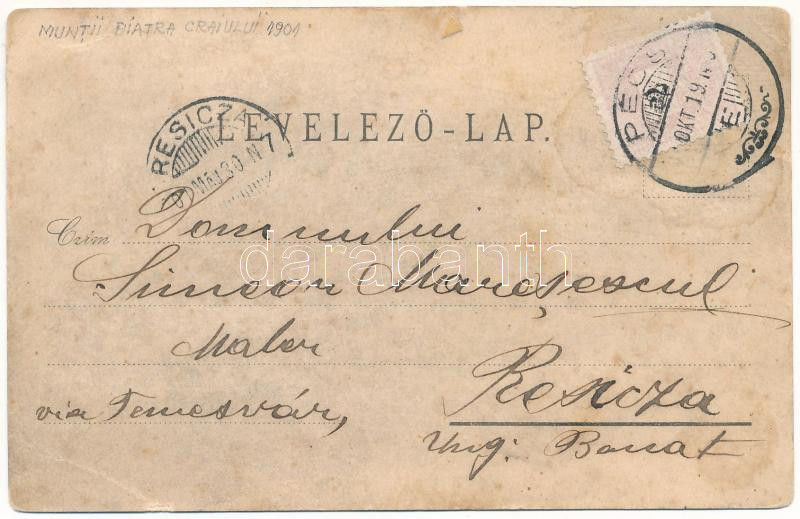 MUNȚII PIATRA CRAIULUI 1901
PÉCS
OKT. 19
E
RESICZA
MÁJ. 30 N 7
LEVELEZŐ-LAP.
Czím Domnului
Simeon Marșescul
Maler
via Temesvár,
Resicza
Ung: Banat
darabanth